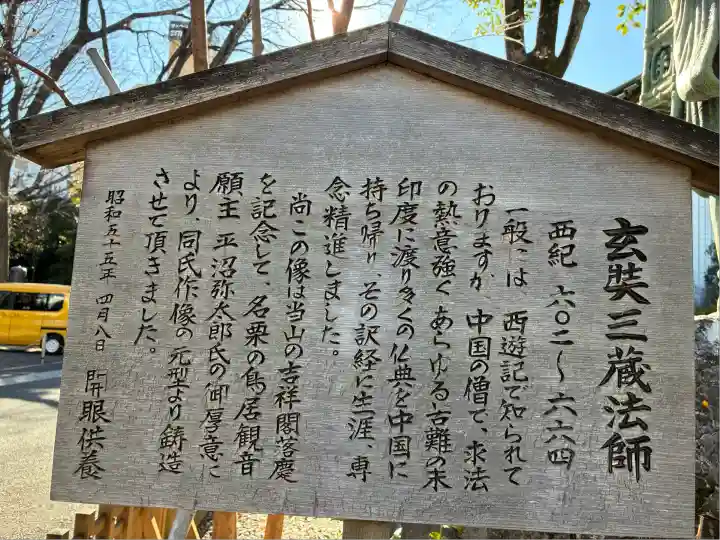 玄奘三蔵法師
西紀 六〇二〜六六四
一般には 西遊記で知られて
おりますが、中国の僧で、求法
の熱意強く あらゆる苦難の末
印度に渡り多くの仏典を中国に
持ち帰り、その訳経に生涯、専
念精進しました。
尚この像は当山の吉祥閣落慶
を記念して、名栗の鳥居観音
願主 平沼弥太郎氏の御厚意に
より、同氏作像の元型より鋳造
させて頂きました。
昭和五十五年 四月八日 開眼供養